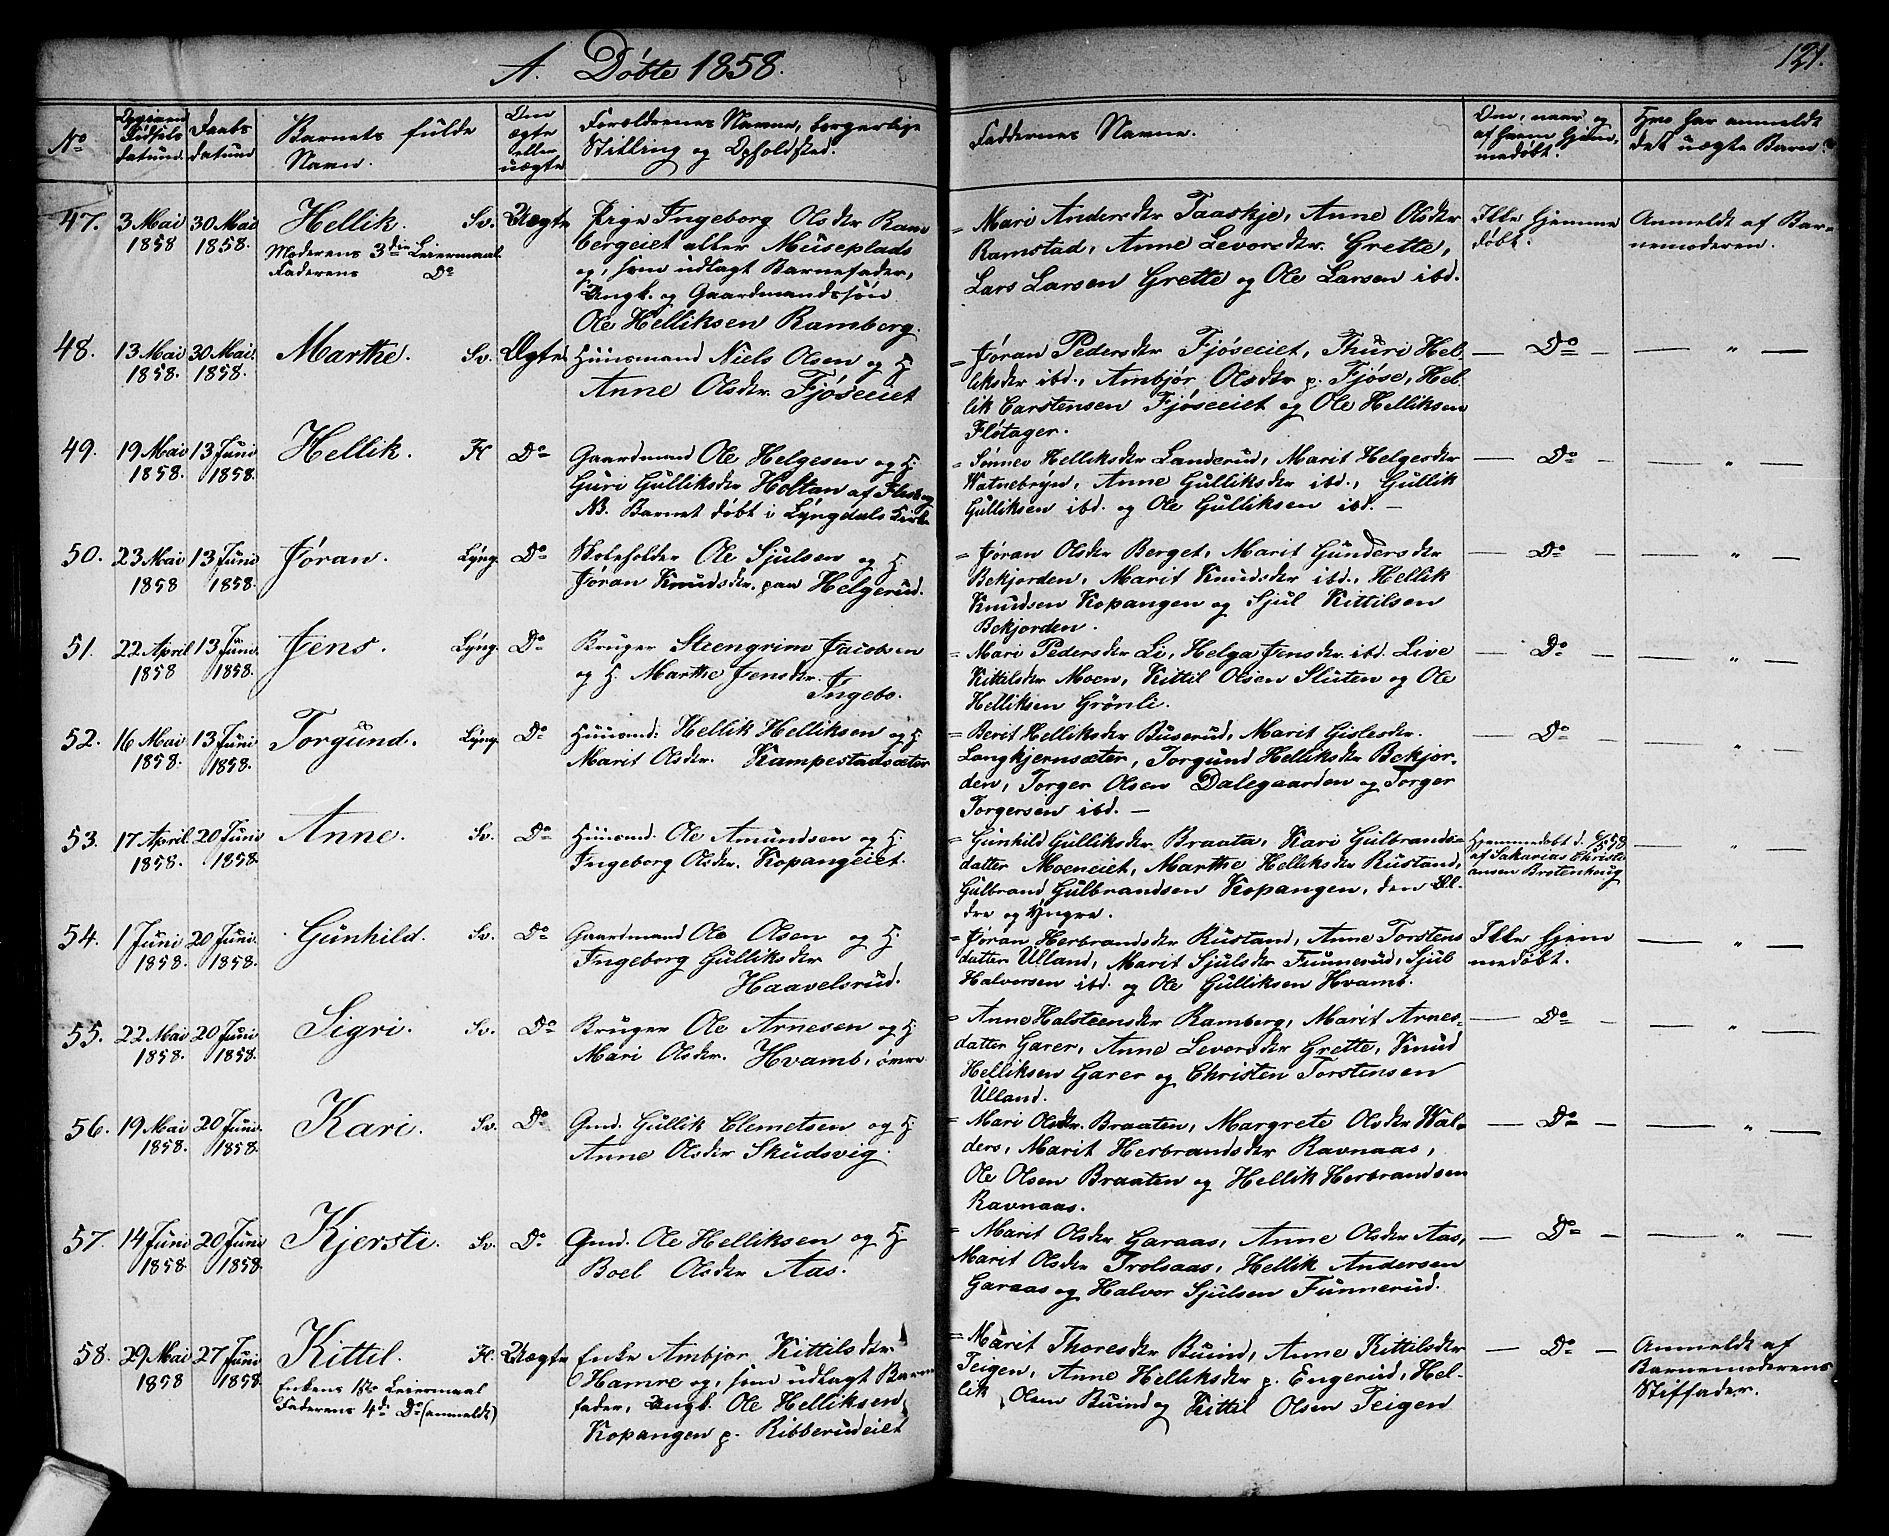 A. Døbte 1858.
121.
No
Fødsels datum.
Daabs datum
Barnets fulde Navn.
Om ægte eller uægte
Forældrenes Navne, borgerlige Stilling og Opholdsted.
Faddernes Navne.
Om, naar og af hvem hjemmedøbt.
Hvo har anmeldt det uægte Barn?
47. 3 Mai 30 Mai Hellik. Sv. Uægte Pige Ingeborg Olsdtr Ram
1858 1858. Moderens 3die Leiermaal bergeiet eller Museplads
Faderens Do og, som udlagt Barnefader,
Ungk. og Gaardmandssøn
Ole Helliksen Ramberg.
= Mari Andersdtr Taaskje, Anne Olsdtr
Ramstad, Anne Levorsdtr. Grette,
Lars Larsen Grette og Ole Larsen ibd.
Ikke hjemme
døbt.
Anmeldt af Bar-
nemoderen.
48. 13 Mai 30 Mai. Marthe. Sv. Ægte Huusmand Niels Olsen og H
1858. 1858. Anne Olsdtr. Fjøseeiet
= Jøran Pedersdtr Fjøseeiet, Thuri Hel-
liksdtr ibd., Ambjør Olsdtr p. Fjøse, Hel-
lik Carstensen Fjøseeiet og Ole Helliksen
Fløtager.
— Do — — " —
49. 19 Mai 13 Juni Hellik. H Do Gaardmand Ole Helgesen og H.
1858. 1858. Guri Gulliksdtr Holtan af Flesberg
NB. Barnet døbt i Lyngdals Kirke
= Sønnev Helliksdtr Landerud, Marit Helgesdtr
Watnebryn, Anne Gulliksdtr ibd., Gullik
Gulliksen ibd. og Ole Gulliksen ibd. —
— Do — — " —
50. 23 Mai 13 Juni Jøran. Lyng. Do Skoleholder Ole Sjulsen og H
1858 1858. Jøran Knudsdtr. paa Helgerud.
= Jøran Olsdtr Berget, Marit Gundersdtr
Bekjorden, Marit Knudsdtr ibd., Hellik
Knudsen Kopangen og Sjul Kittilsen
Bekjorden.
— Do — — " —
51. 22 April 13 Juni. Jens. Lyng. Do Bruger Steengrim Jacobsen
1858 1858. og H. Marthe Jensdtr.
Ingebo.
= Mari Pedersdtr Li, Helga Jensdtr ibd. Live
Kittilsdtr Moen, Kittil Olsen Sluten og Ole
Helliksen Grönli.
— Do — — " —
52. 16 Mai 13 Juni Torgund. Lyng. Do Huusmd: Hellik Helliksen og H
1858. 1858. Marit Olsdtr. Kampestadsæter
= Berit Helliksdtr Buserud, Marit Gislesdtr.
Langkjernsæter, Torgund Helliksdtr Bekjor-
den, Torger Olsen Dalegaarden og Torger
Torgersen ibd. —
— Do — — " —
53. 17 April 20 Juni Anne. Sv. Do Huusmd: Ole Amundsen og H
1858. 1858. Ingeborg Olsdtr. Kopangeiet.
= Gunhild Gulliksdtr Braata, Kari Gulbrands-
datter Moeneiet, Marthe Helliksdtr Rustand,
Gulbrand Gulbrandsen Kopangen, den Æl-
dre og Yngre.
Hjemmedøbt d. 6/5 58
af Sakarias Christi-
ansen Brotenhoug
— " —
54. 1 Juni 20 Juni. Gunhild. Sv. Do Gaardmand Ole Olsen og H
1858. 1858. Ingeborg Gulliksdtr
Haavelsrud.
= Jøran Herbrandsdtr Rustand, Anne Torstens
datter Ulland, Marit Sjulsdtr Funnerud, Sjul
Halvorsen ibd. og Ole Gulliksen Hvamb.
Ikke hjem
medøbt.
— " —
55. 22 Mai 20 Juni Sigri. Sv. Do Bruger Ole Arnesen og H
1858. 1858. Mari Olsdtr. Hvamb, øvre
= Anne Halsteensdtr Ramberg, Marit Arnes-
datter Garer, Anne Levorsdtr Grette, Knud
Helliksen Garer og Christen Torstensen
Ulland.
— Do — — " —
56. 19 Mai 20 Juni. Kari. Sv. Do Gmd. Gullik Clemetsen og H
1858. 1858. Anne Olsdtr Skudsvig.
= Mari Olsdtr. Braaten, Margrete Olsdtr Wal-
ders, Marit Herbrandsdtr Ravnaas,
Ole Olsen Braaten og Hellik Herbrandsen
Ravnaas.
— Do — — " —
57. 14 Juni 20 Juni Kjersti. Sv. Do Gmd. Ole Helliksen og H
1858. 1858. Boel Olsdtr Aas.
= Marit Olsdtr Garaas, Anne Olsdtr Aas,
Marit Olsdtr Trolsaas, Hellik Andersen
Garaas og Halvor Sjulsen Funnerud.
— Do — — " —
58. 29 Mai 27 Juni Kittil. H. Uægte Enke Ambjør Kittilsdtr
1858 1858. Enkens 1ste Leiermaal Hamre og, som udlagt Barne
Faderens 4de Do (anmeldt) fader, Ungk. Ole Helliksen
Kopangen p. Ribberudeiet
= Marit Thoresdtr Buind, Anne Kittilsdtr
Teigen, Anne Helliksdtr p. Engerud, Hel-
lik Olsen Buind og Kittil Olsen Teigen
— Do —
Anmeldt af
Barnemoderens
Stiffader.